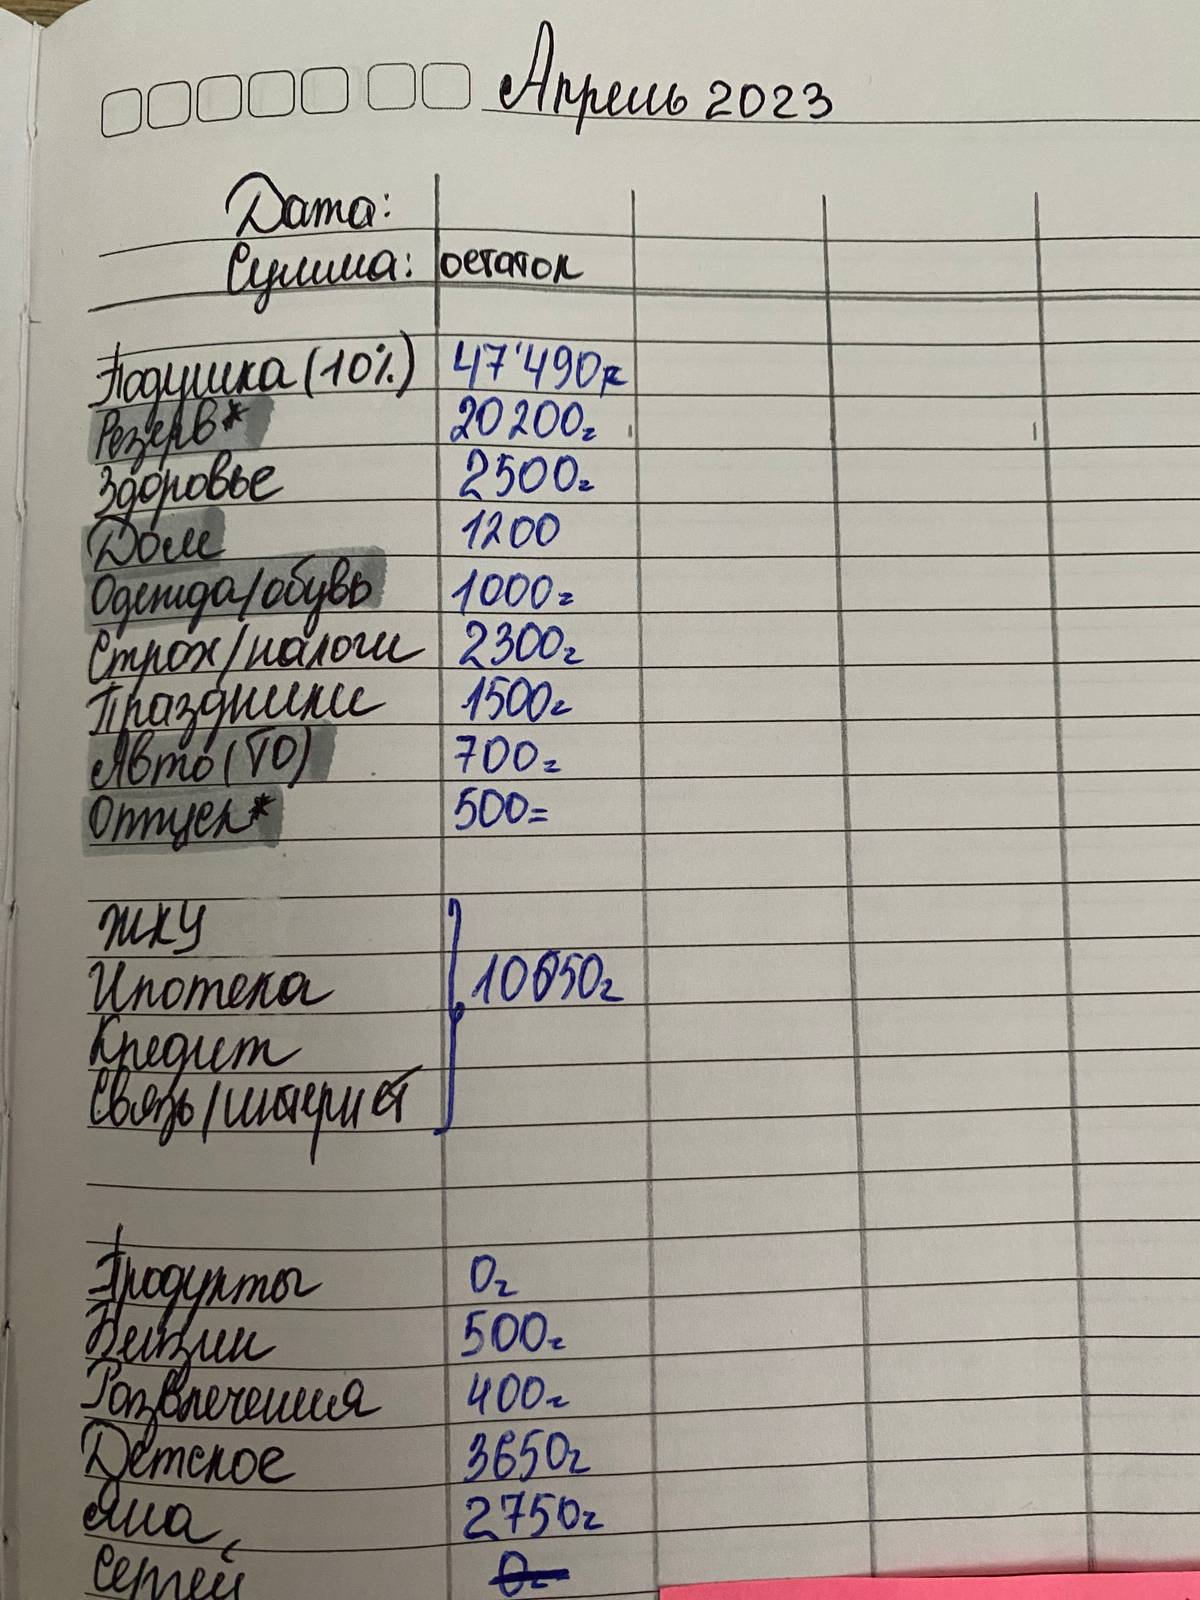 Апрель 2023
Дата:
Сумма: остаток
Подушка (10%) 47'490к
Резерв* 20200г
Здоровье 2500г
Дом 1200
Одежда/обувь 1000г
Страх/налоги 2300г
Праздники 1500г
Авто (ТО) 700г
Отпуск* 500=
ЖКУ
Ипотека 10650г
Кредит
Связь/интернет
Продукты 0г
Бензин 500г
Развлечения 400г
Детское 3650г
Яна 2750г
Сергей